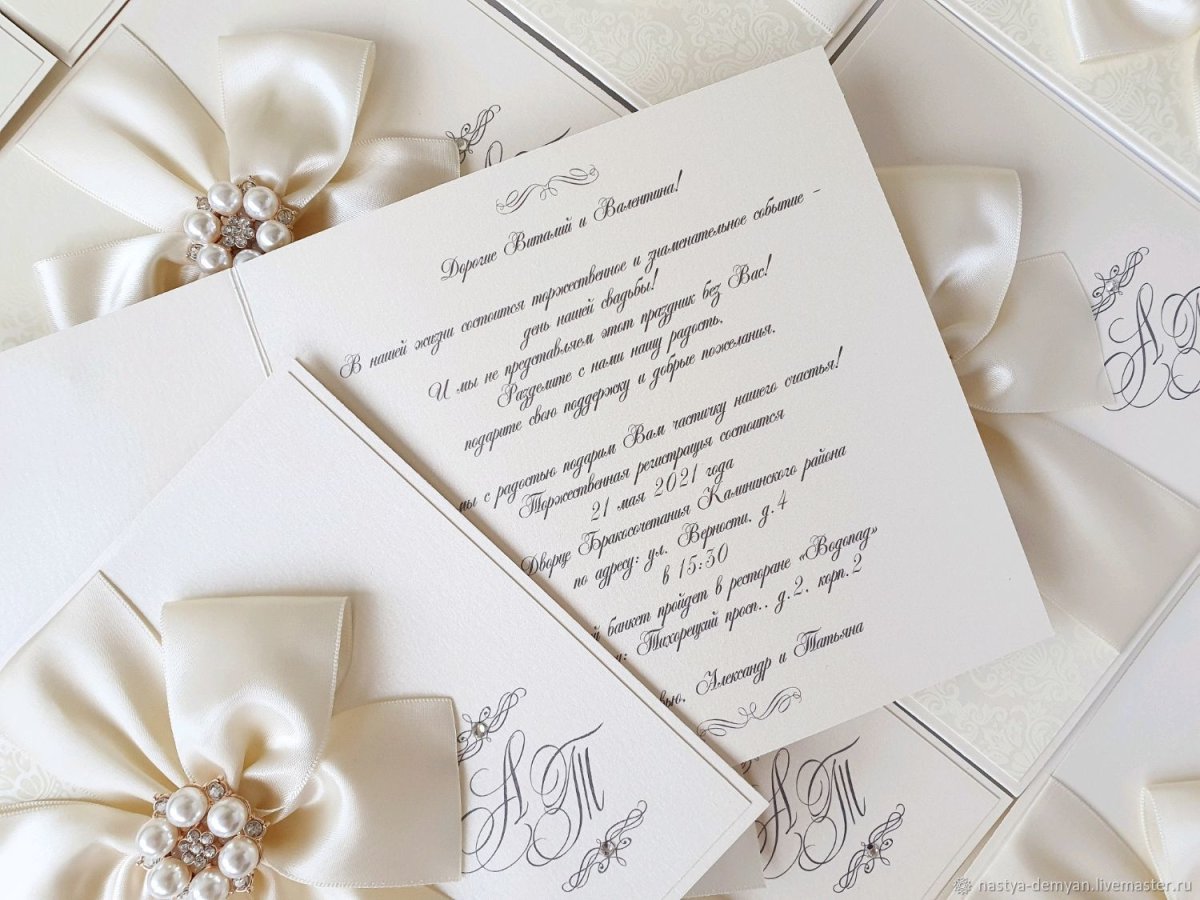 Дорогие Виталий и Валентина!
В нашей жизни состоится торжественное и знаменательное событие -
день нашей свадьбы!
И мы не представляем этот праздник без Вас!
Разделите с нами нашу радость,
подарите свою поддержку и добрые пожелания.
мы с радостью подарим Вам частичку нашего счастья!
Торжественная регистрация состоится
21 мая 2021 года
Дворце Бракосочетания Калининского района
по адресу: ул. Верности, д. 4
в 15:30
банкет пройдет в ресторане «Водопад»
Тихорецкий просп., д. 2, корп. 2
Александр и Татьяна
АТ
АТ
nastya-demyan.livemaster.ru